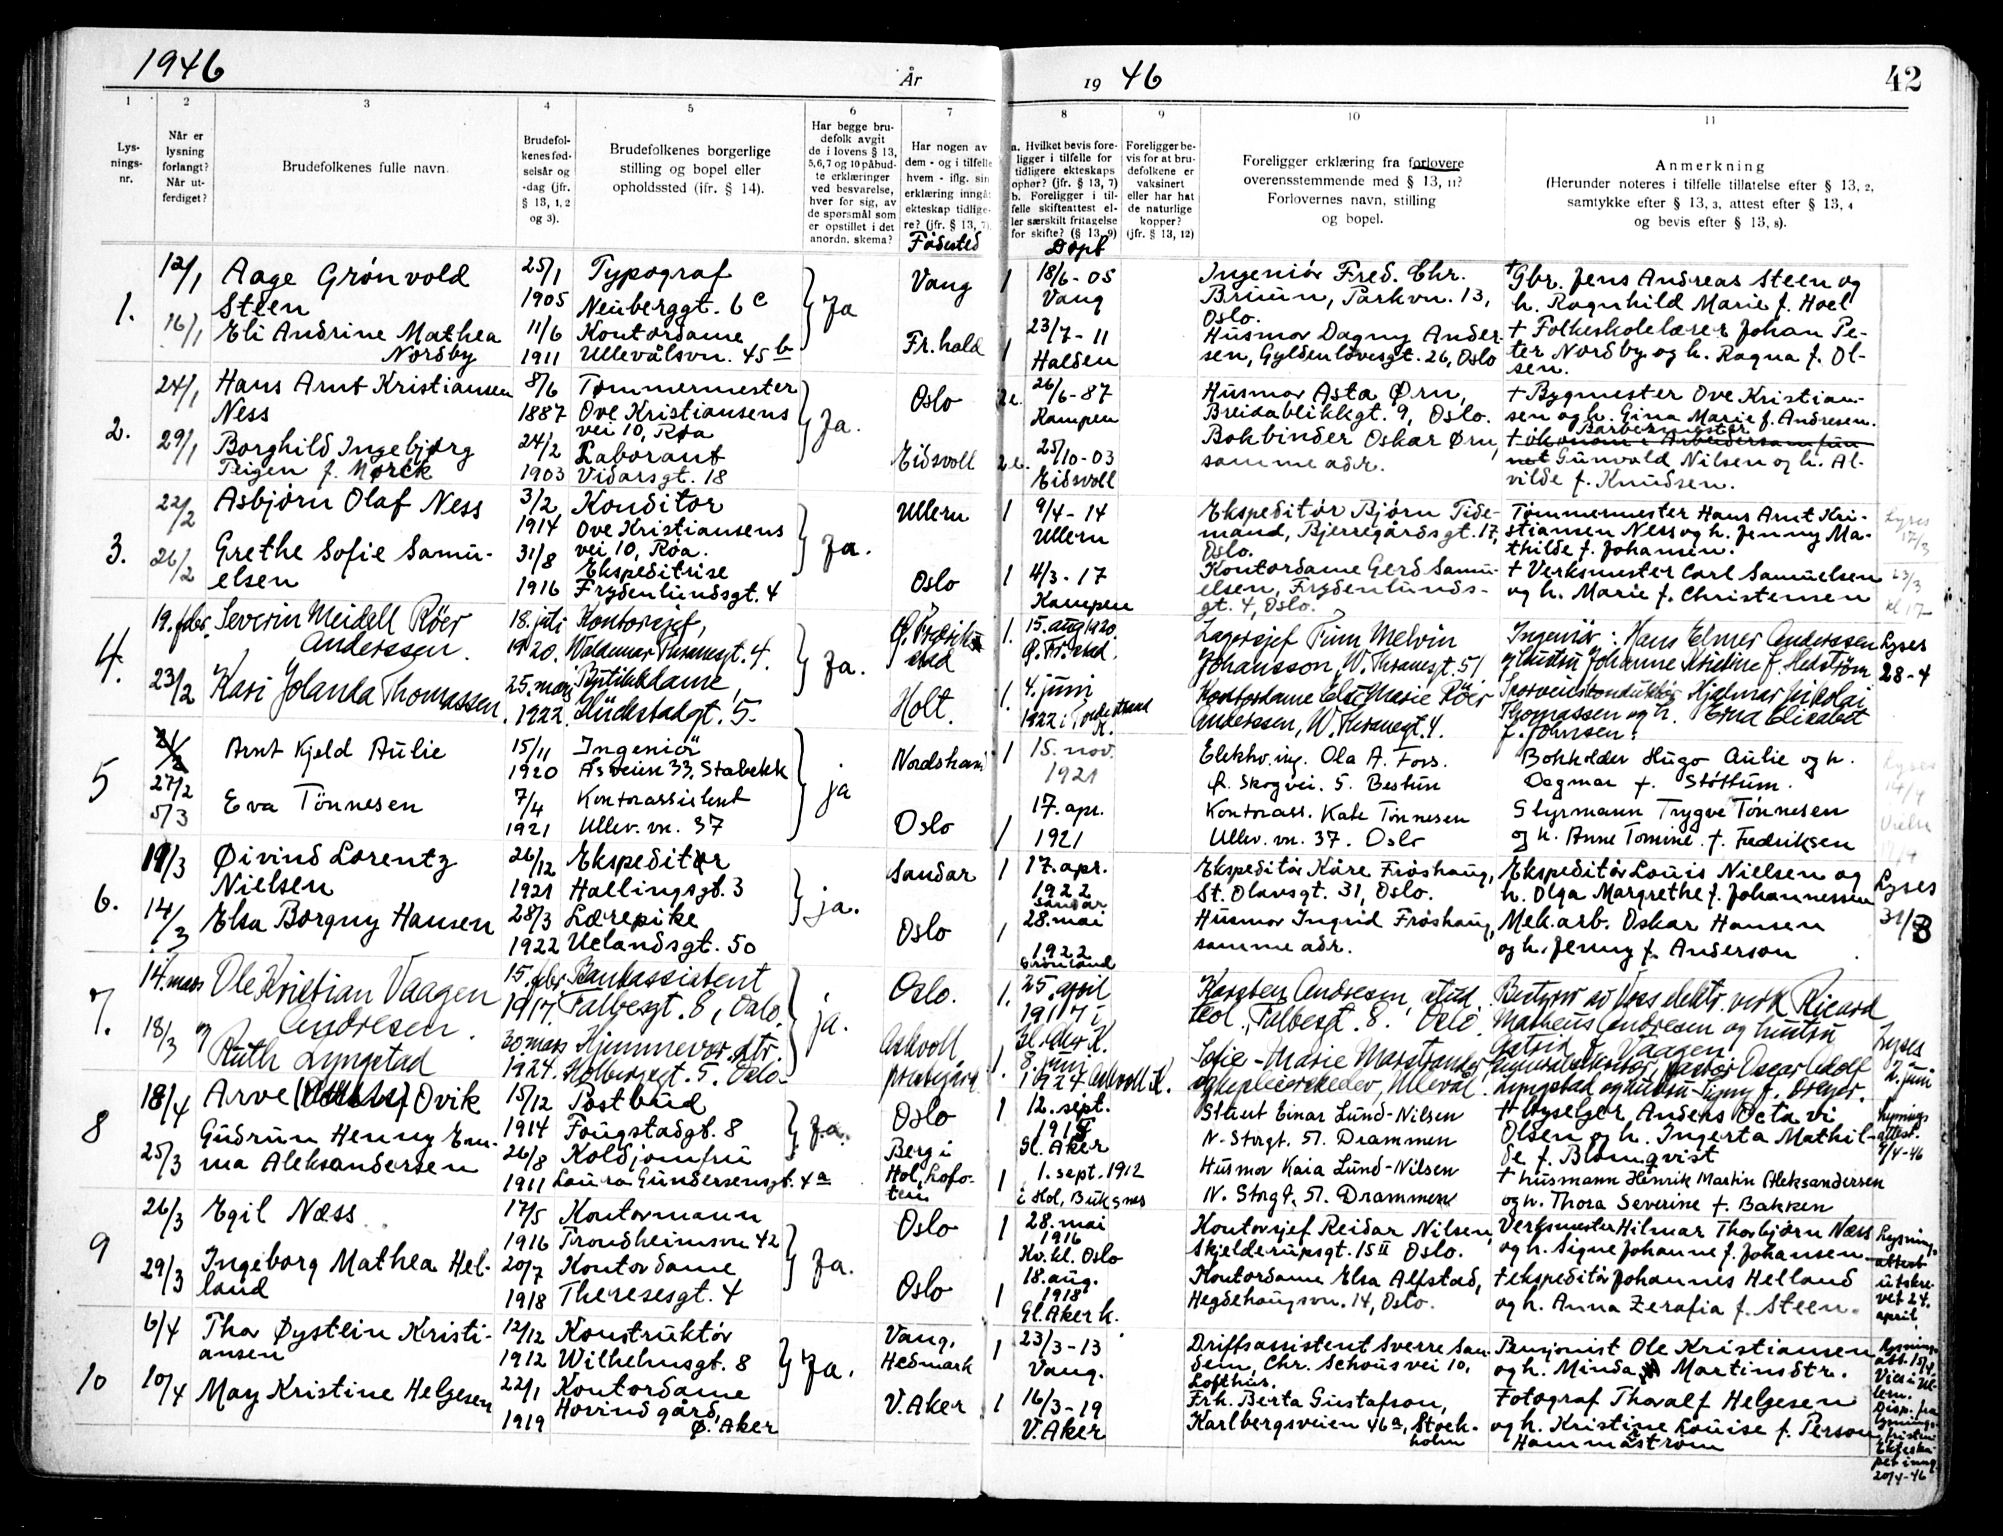 1946
År
19 46
42
1
2
3
4
5
6
7
8
9
10
11
Lys-
nings-
nr.
Når er
lysning
forlangt?
Når ut-
ferdiget?
Brudefolkenes fulle navn.
Brudefol-
kenes fød-
selsår og
-dag (jfr.
§ 13, 1, 2
og 3).
Brudefolkenes borgerlige
stilling og bopel eller
opholdssted (jfr. § 14).
Har begge bru-
defolk avgit
de i lovens § 13,
5, 6, 7 og 10 påbud-
te erklæringer
ved besvarelse,
hver for sig, av
de spørsmål som
er opstillet i det
anordn. skema?
Har nogen av
dem - og i tilfelle
hvem - iflg. sin
erklæring inngåt
ekteskap tidlige-
re? (jfr. § 13, 7).
Fødested
a. Hvilket bevis fore-
ligger i tilfelle for
tidligere ekteskaps
ophør? (jfr. § 13, 7)
b. Foreligger i til-
felle skifteattest el-
ler særskilt fritagelse
for skifte? (§ 13, 9)
Døpt
Foreligger be-
vis for at bru-
defolkene er
vaksinert
eller har hat
de naturlige
kopper?
(jfr. § 13, 12)
Foreligger erklæring fra forlovere
overensstemmende med § 13, 11?
Forlovernes navn, stilling
og bopel.
Anmerkning
(Herunder noteres i tilfelle tillatelse efter § 13, 2,
samtykke efter § 13, 3, attest efter § 13, 4
og bevis efter § 13, 8).
1.
12/1
16/1
Aage Grønvold
Steen
Eli Andrine Mathea
Nordby
25/1
1905
11/6
1911
Typograf
Neuberggt. 6 c
Kontordame
Ullevålsvn. 45 b
Ja
Vang
Fr.hald
1
1
18/6-05
Vang
23/7-11
Halden
Ingeniør Fred. Chr.
Bruun, Parkvn. 13,
Oslo.
Husmor Dagny Ander-
sen, Gyldenløvesgt. 26, Oslo
+ Gbr. Jens Andreas Steen og
h. Ragnhild Marie f. Hoel
+ Folkeskolelærer Johan Pe-
ter Nordby og h. Ragna f. Ol-
sen.
2.
24/1
29/1
Hans Arnt Kristiansen
Ness
Borghild Ingebjørg
Teigen f. Mørck
8/6
1887
24/2
1903
Tømmermester
Ove Kristiansens
vei 10, Røa
Laborant
Vidarsgt. 18
Ja.
Oslo
Eidsvoll
2 e.
2 e.
26/6-87
Kampen
25/10-03
Eidsvoll
Husmor Asta Ørn,
Breidablikkgt. 9, Oslo.
Bokbinder Oskar Ørn,
samme adr.
+ Bygmester Ove Kristian-
sen og h. Gina Marie f. Andresen.
Barbermester
+ økonom i Arbeidersamfun-
net Gunvald Nilsen og h. Al-
vilde f. Knudsen.
3.
22/2
26/2
Asbjørn Olaf Ness
Grethe Sofie Samu-
elsen
3/2
1914
31/8
1916
Konditor
Ove Kristiansens
vei 10, Røa.
Ekspeditrise
Frydenlundsgt. 4
Ja.
Ullern
Oslo
1
1
9/4-14
Ullern
4/3-17
Kampen
Ekspeditør Bjørn Tide-
mand, Bjerregårdsgt. 17,
Oslo.
Kontordame Gerd Samu-
elsen, Frydenlunds-
gt. 4, Oslo.
Tømmermester Hans Arnt Kri-
stiansen Ness og h. Jenny Ma-
thilde f. Johansen.
+ Verksmester Carl Samuelsen
og h. Marie f. Christensen
Lyses
17/3
23/3
kl 17
4.
19. febr.
23/2
Severin Meidell Röer
Anderssen.
Kari Jolanda Thomassen.
18. juli
1920.
25. mars
1922.
Kontorsjef,
Waldemar Thranesgt. 4.
Butikkdame,
Glückstadgt. 5.
Ja.
Holt.
1.
1.
15. aug 1920.
4. juni
1922
Lagersjef Finn Melvin
Johansson, W. Thranesgt. 51
Kontordame Else Marie Röer
Anderssen, W. Thranesgt. 4.
Ingeniør Hans Elmer Anderssen
og hustru Johanne Kristine f. Hedstrøm
Sporveiskonduktør Hjalmar Nikolai
Thomassen og h. Erna Elisabet
f. Johnsen.
Lyses
28-4
5
27/2
5/3
Arnt Kjeld Aulie
Eva Tønnesen
15/11
1920
7/4
1921
Ingeniør
Åsveien 33, Stabekk
Kontorassistent
Ullev. vn. 37
ja
Oslo
1
1
15. nov.
1921
17. apr.
1921
Elektro.ing. Ola A. Fors.
Ø. Skogvei. 5. Bestun
Kontorass. Kate Tønnesen
Ullev. vn. 37. Oslo
Bokholder Hugo Aulie og h.
Dagmar f. Støttum.
Styrmann Trygve Tønnesen
og h. Anne Tomine f. Fredriksen
6.
11/3
14/3
Øivind Lorentz
Nielsen
Elsa Borgny Hansen
26/12
1921
28/3
1922
Ekspeditør
Hallingsgt. 3
Lærepike
Uelandsgt. 50
ja.
Sandar
Oslo
1
1
17. apr.
1922
Sandar
28. mai
1922
Grønland
Ekspeditør Kåre Frøshaug,
St. Olavsgt. 31, Oslo.
Husmor Ingrid Frøshaug,
samme adr.
Ekspeditør Louis Nielsen og
h. Olga Margrethe f. Johannessen
Mek.arb. Oskar Hansen
og h. Jenny f. Anderson
Lyses
31/3
7.
14. mars
18/3
Ole Kristian Vaagen
Andresen.
og
Ruth Lyngstad
15. febr.
1917.
30. mars
1924.
Bankassistent
Falbesgt. 8, Oslo.
Hjemmevær. dtr.
Holbergsgt. 5. Oslo.
ja.
Oslo.
Askvoll
prestegård
1.
1.
25. april
1917 i
Gl. Aker K.
8. juni
1924 Askvoll K.
Karsten Andresen, stud.
teol., Falbesgt. 8. Oslo
Sofie-Marie Marstrander
Bestyrer av Voss elektr. verk Rikard
Matheus Andresen og hustru
Astrid f. Vaagen
Generalsekretær, pastor Oscar Adolf
Lyngstad og hustru Signy f. Dreyer.
Lyses
2. juni
8
18/4
25/3
Arve Ovik
Gudrun Henny Em-
ma Aleksandersen
15/12
1914
26/8
1911
Postbud
Fougstadgt. 8
Koldjomfru
Laura Gundersensgt. 4a
Ja.
Oslo
Berg i
Hol, Lofo-
ten
1
1
12. sept.
Gl. Aker
1. sept. 1912
i Hol, Buksnes
Stuert Einar Lund-Nilsen
N. Storgt. 51. Drammen
Husmor Kaia Lund-Nilsen
N. Storgt. 51. Drammen
+ Hyselger Anders Octavi
Olsen og h. Ingerta Mathil-
de f. Blomqvist
+ husmann Henrik Martin Aleksandersen
og h. Thora Severine f. Bakken
Lysnings-
attest.
9/4-46
9
26/3
29/3
Egil Næss
Ingeborg Mathea Hel-
land
17/5
1916
20/7
1918
Kontormann
Trondheimsvn 42
Kontordame
Theresesgt. 4
Ja.
Oslo
Oslo
1
1
28. mai
1916
Kv.kl. Oslo
18. aug.
1918
Gl. Aker k.
Kontorsjef Reidar Nilsen,
Skjelderupsgt. 15 II Oslo.
Kontordame Elsa Alfstad,
Hegdehaugsvn. 14, Oslo.
Verksmester Hilmar Thorbjørn Næss
og h. Signe Johanne f. Johansen
+ ekspeditør Johannes Helland
og h. Anna Zerafia f. Steen.
Lysnings-
attest
utskre-
vet 24.
april.
10
6/4
10/4
Thor Øystein Kristi-
ansen
May Kristine Helgesen
12/12
1912
22/1
1919
Konstruktør
Wilhelmsgt. 8
Kontordame
Hovind gård,
Ø. Aker
Ja.
Vang,
Hedmark
V. Aker
1
1
23/3-13
Vang.
16/3-19
V. Aker
Driftsassistent Sverre San-
dem, Chr. Schous vei 10,
Lofthus.
Frk. Berta Gustafson,
Karlbergsveien 46a, Stock-
holm
Pensjonist Ole Kristiansen
og h. Minda Martinsdtr.
Fotograf Thoralf Helgesen
og h. Kristine Louise f. Person
Hammarstrøm
Lysnings-
att. 15/4.
Vies i Ul-
lern.
Disp. fra
lysnings-
fristen
Ekteska-
pet inng.
20/4-46